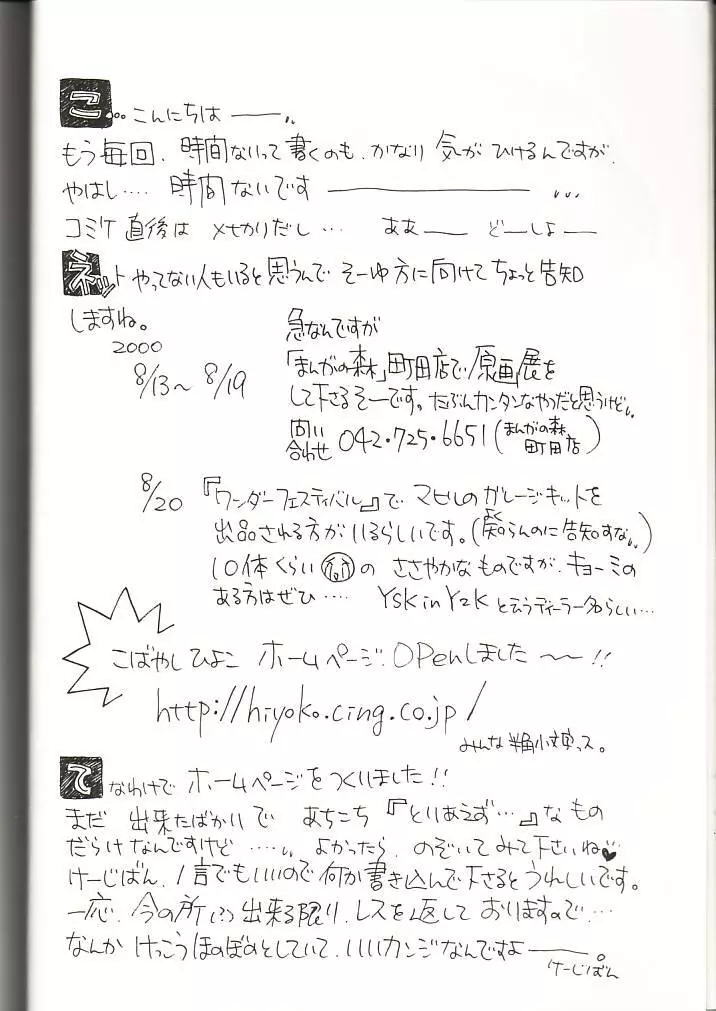 こ… こんにちは ――‥
もう毎回、時間ないって書くのも、かなり 気が ひけるんですが、
やはし‥‥ 時間 ないです ―――――― …
コミケ 直後は 〆切りだし… ああ―― どーしよ――
ネット やってない人もいると思うんで そーゆ方に向けてちょっと告知
しますね。
2000
8/13〜 8/19
急なんですが
「まんがの森」町田店で「原画」展を
して下さるそーです。たぶんカンタンなやつだと思うけど‥
問い合わせ 042・725・6651(まんがの森 町田店)
8/20 『ワンダーフェスティバル』で マヒルのガレージキットを
出品される方がいるらしいです。(よく知らんのに告知すな‥)
10体くらい の ささやかなものですが、キョーミの
ある方はぜひ‥‥ YSK in Y2K と云うディーラー名らしい…
こばやしひよこ ホームページ OPenしました 〜〜!!
http://hiyoko.cing.co.jp/
みんな半角小文字っス。
て なわけで ホームページをつくりました!!
まだ 出来たばかりで あちこち 『とりあえず…』な もの
だらけなんですけど ‥‥‥ よかったら、のぞいてみて下さいね♥
けーじばん、1言でもいいので何か書き込んで下さるとうれしいです。
一応、今の所は 出来る限り、レスを返して おりますので…
なんか けっこうほのぼのとしていて、いいカンジなんですよ――。
けーじばん